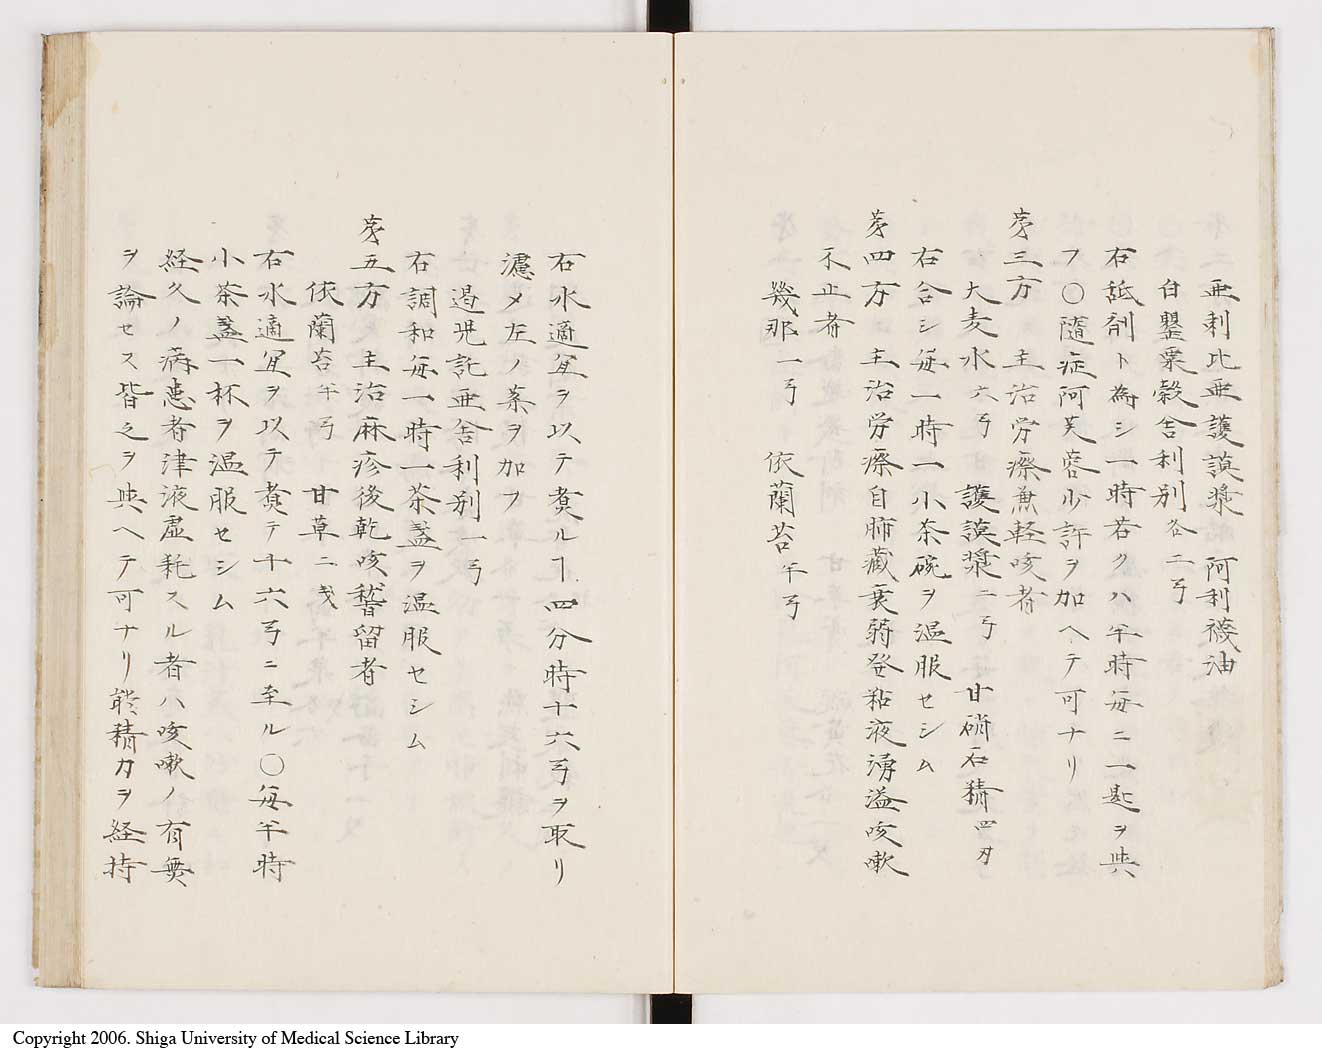 亜剌比亜護謨漿　阿利襪油
白罌粟穀舎利別各二弓
右舐剤ト為シ一時若クハ半時毎ニ一匙ヲ與
フ〇随症阿芙蓉少許ヲ加ヘテ可ナリ
第三方　主治労瘵兼軽咳者
大麦水六弓　護謨漿二弓　甘硝石精四刄
右合シ毎一時一小茶碗ヲ温服セシム
第四方　主治労瘵自肺蔵衰弱発粘液湧溢咳嗽
不止者
幾那一弓　依蘭苔半弓
右水適宜ヲ以テ煑ルヿ四分時十六弓ヲ取リ
濾メ左ノ薬ヲ加フ
過兜訖亜舎利別一弓
右調和毎一時一茶盞ヲ温服セシム
第五方　主治麻疹後乾咳稽留者
依蘭苔半弓　甘草二戔
右水適宜ヲ以テ煑テ十六弓ニ至ル〇毎半時
小茶盞一杯ヲ温服セシム
経久ノ病患者津液虚耗スル者ハ咳嗽ノ有無
ヲ論セス皆之ヲ與ヘテ可ナリ能精力ヲ経持
Copyright 2006. Shiga University of Medical Science Library